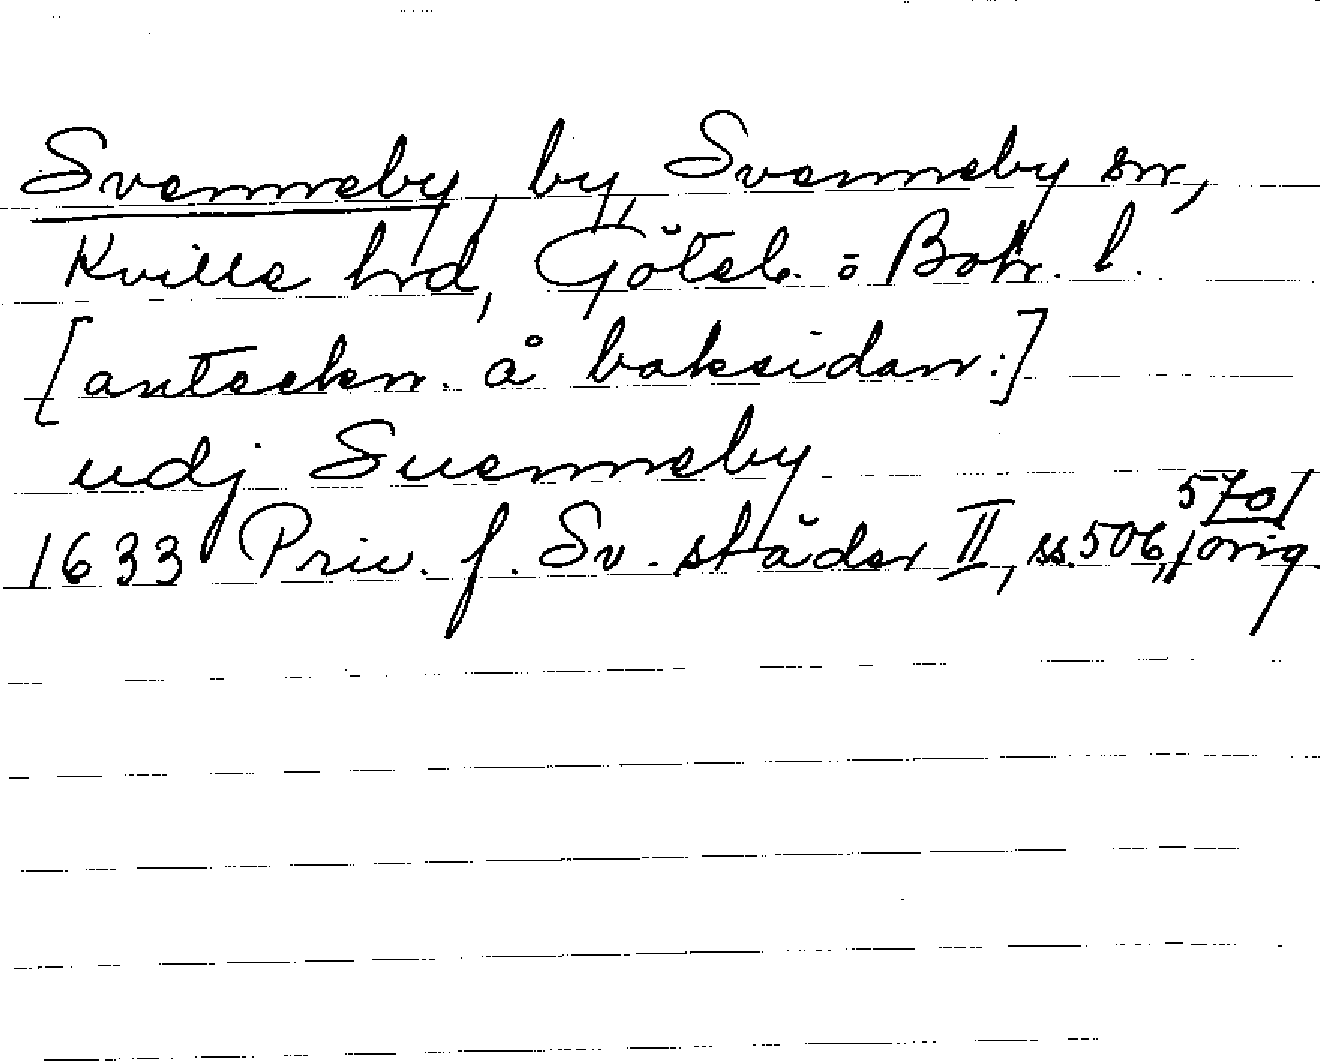 Svenneby, by, Svenneby sn,
Kville hrd, Göteb. o Boh. l.
[anteckn. å baksidan:]
udj Suenneby
1633 Priv. f. Sv. städer II, ss. 506, 570/ orig.